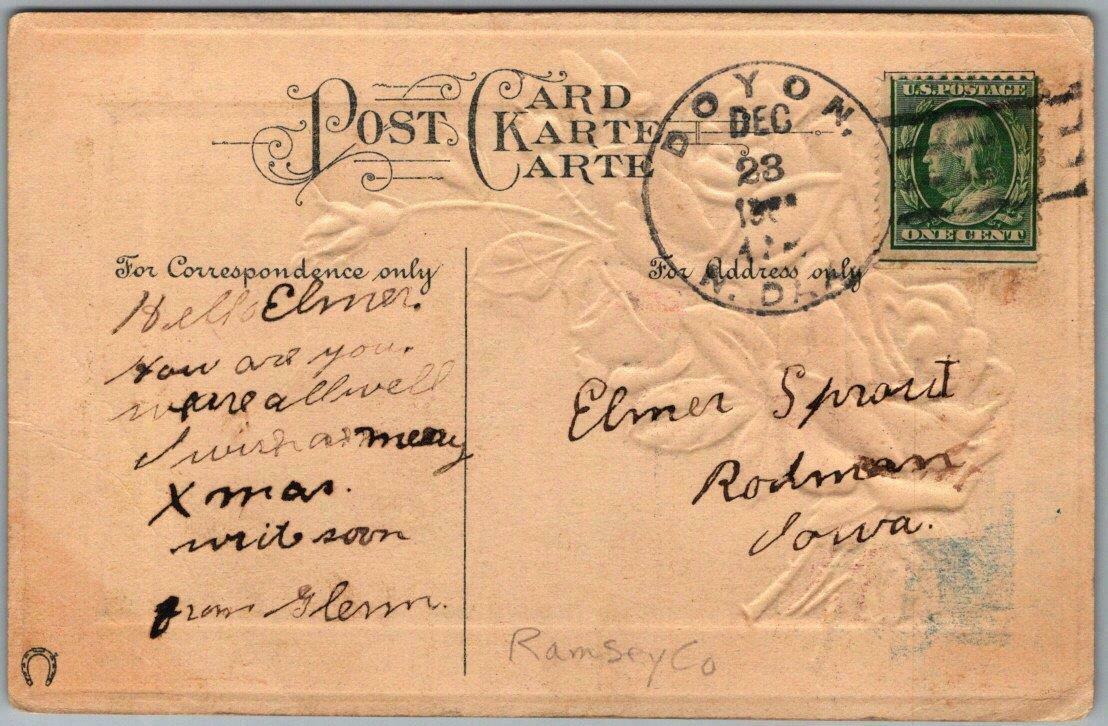 POST CARD
KARTE
CARTE
DOYON,
DEC
23
N. DAK.
U.S. POSTAGE
ONE CENT
For Correspondence only
For Address only
Hello Elmer.
How are you.
we are all well
I wish a merry
X mas.
writ soon
from Glenn.
Elmer Sprout
Rodman
Iowa.
Ramsey Co